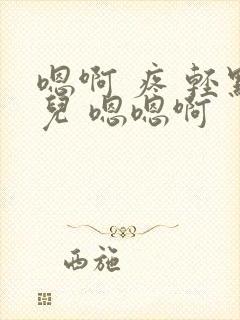 嗯啊 疼 轻點
兒 嗯嗯啊
西施